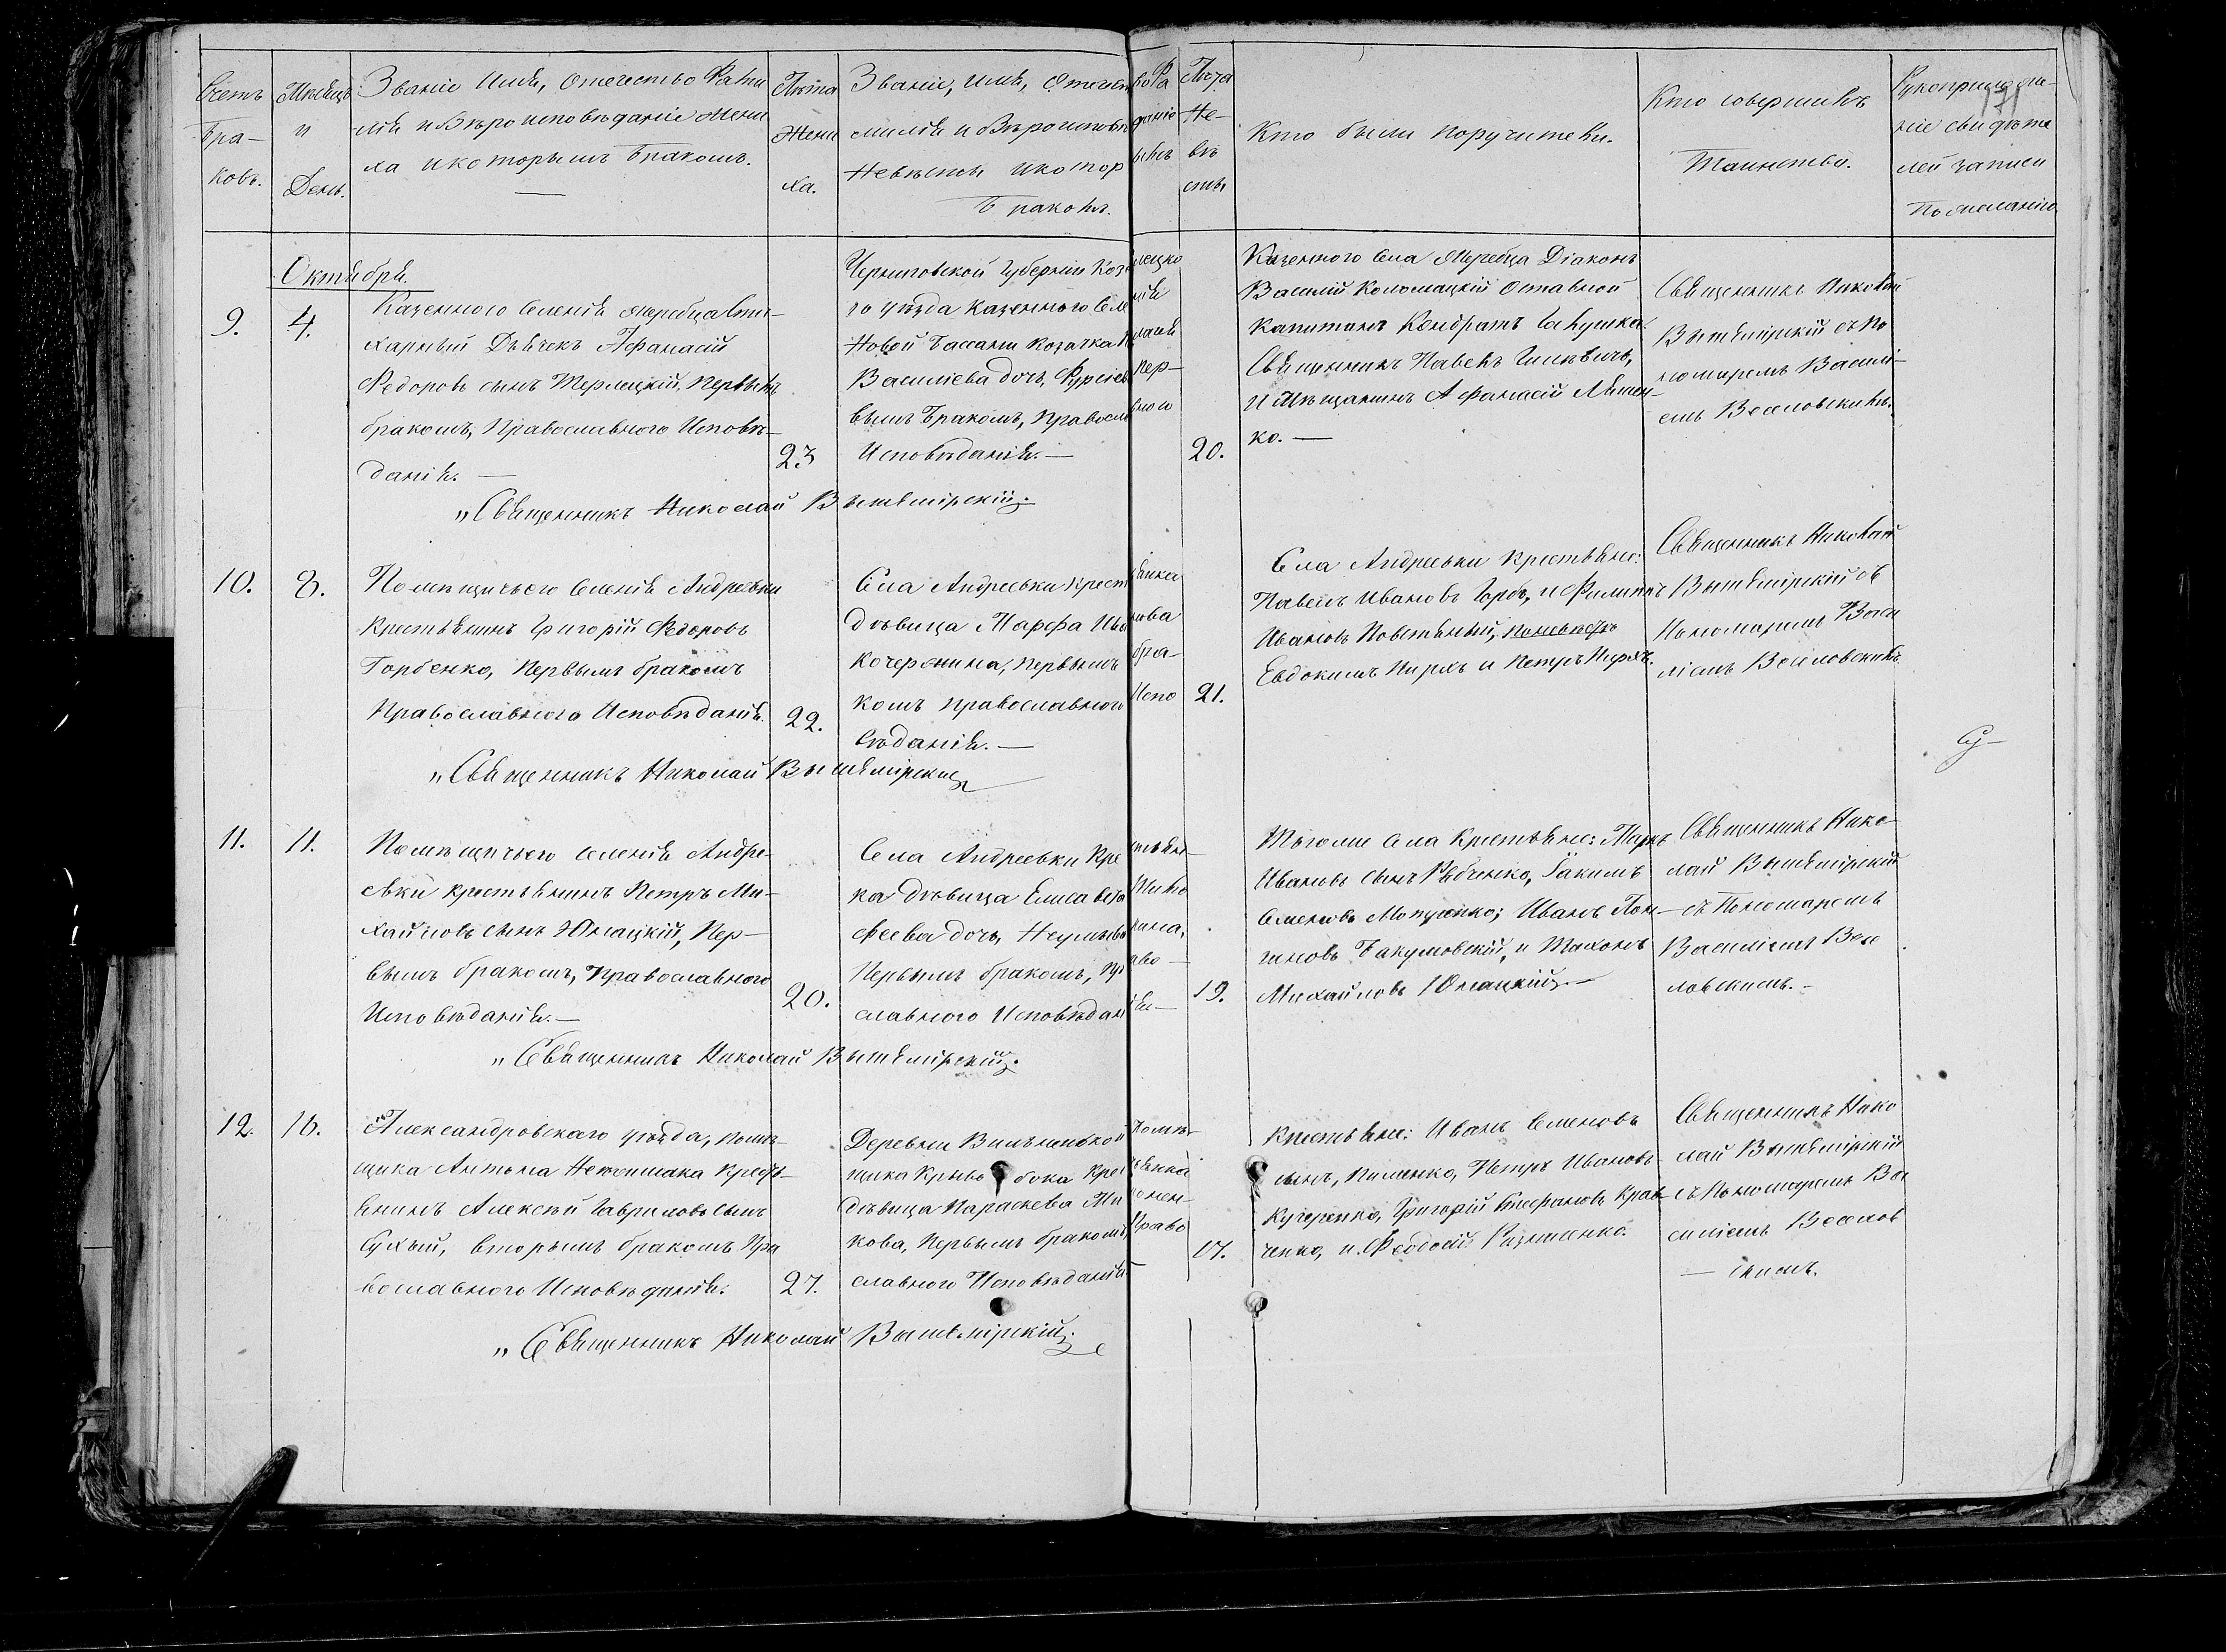 Счетъ
Бра-
ковъ.
Мѣсяцъ
и
День.
Званіе Имя, Отечество Фами
лія и Вѣроисповѣданіе Жени
ха и которымъ бракомъ.
Лѣта
Жени
ха.
Званіе, имя, Отечество Фа
милія и Вѣроисповѣданіе
Невѣсты и которымъ
Бракомъ.
Лѣта
Не-
вѣ
сты
Кто были поручители.
Кто совершилъ
Таинство.
Рукоприкладст-
ніе свидѣте
лей записи
По желанію
171
Октября.
9.
4.
Казеннаго Селенія Жеребца Сти-
харный Дьячекъ Афанасій
Федоровъ сынъ Терлецкій, Первымъ
бракомъ, Православнаго Исповѣ-
данія. —
23
Черниговской Губерніи Козелецко
го уѣзда Казенного Селенія
Новой Басани Козачка
Василіева дочь, пер-
вымъ Бракомъ, Православного
Исповѣданія. —
20.
Казенного Села Жеребца Діаконъ
Василій Коломацкій Отставной
Капитанъ Кондратъ Галушка.
Священникъ Павелъ
И Мѣщанинъ Афанасій Ляшен-
ко. —
Священникъ Николай
Вышемірскій съ По
номаремъ Василі-
емъ Веселовскимъ.
„Священникъ Николай Вышемірскій.
10.
8.
Помѣщичьего Селенія Андреевки
Крестьянинъ Григорій Федоровъ
Горбенко, Первымъ бракомъ
Православного Исповѣданія.
22.
Села Андреевки Крестьянка
дѣвица Марфа Иванова
первымъ бра-
комъ православного Испо
вѣданія. —
21.
Села Андреевки крестьяне:
Павелъ Ивановъ Горбъ, и Филиппъ
Ивановъ Повстяный,
Евдокимъ Пирхъ и Петръ Пирхъ.
Священникъ Николай
Вышемірскій съ
Пономаремъ Васи
ліемъ Веселовскимъ
„Священникъ Николай Вышемірскій
11.
11.
Помѣщичьего селенія Андре-
евки крестьянинъ Петръ Ми-
хайловъ сынъ Юнацкій, Пер-
вымъ бракомъ, Православного
Исповѣданія. —
20.
Села Андреевки Крестьян-
ка дѣвица Елисавета Тимо
феева дочь,
Первымъ бракомъ, Право-
славного Исповѣданія —
19.
Тогоже села Крестьяне: Маркъ
Ивановъ сынъ Рябченко, Іакимъ
Семеновъ Иванъ Лон-
гиновъ Бакумовскій, и Тихонъ
Михайловъ Юнацкій. —
Священникъ Нико-
лай Вышемірскій
съ Пономаремъ
Василіемъ Весе
ловскимъ. —
„Священникъ Николай Вышемірскій.
12.
16.
Александровскаго уѣзда, помѣ-
щика Антона крестья-
янинъ Алексѣй Гавриловъ сынъ
Сухый, вторымъ бракомъ Пра
вославного Исповѣданія.
27.
Деревни Помѣ-
щика Кривобока Крестьянка
дѣвица Параскева
кова, Первымъ бракомъ, Право
славного Исповѣданія. —
17.
Крестьяне: Иванъ Семеновъ
сынъ, Пименко, Петръ Ивановъ
Кучеренко, Григорій Стефановъ Крав-
ченко, и Феодосій
Священникъ Нико
лай Вышемірскій
съ Пономаремъ Ва
силіемъ Веселов
— скимъ.
„Священникъ Николай Вышемірскій.